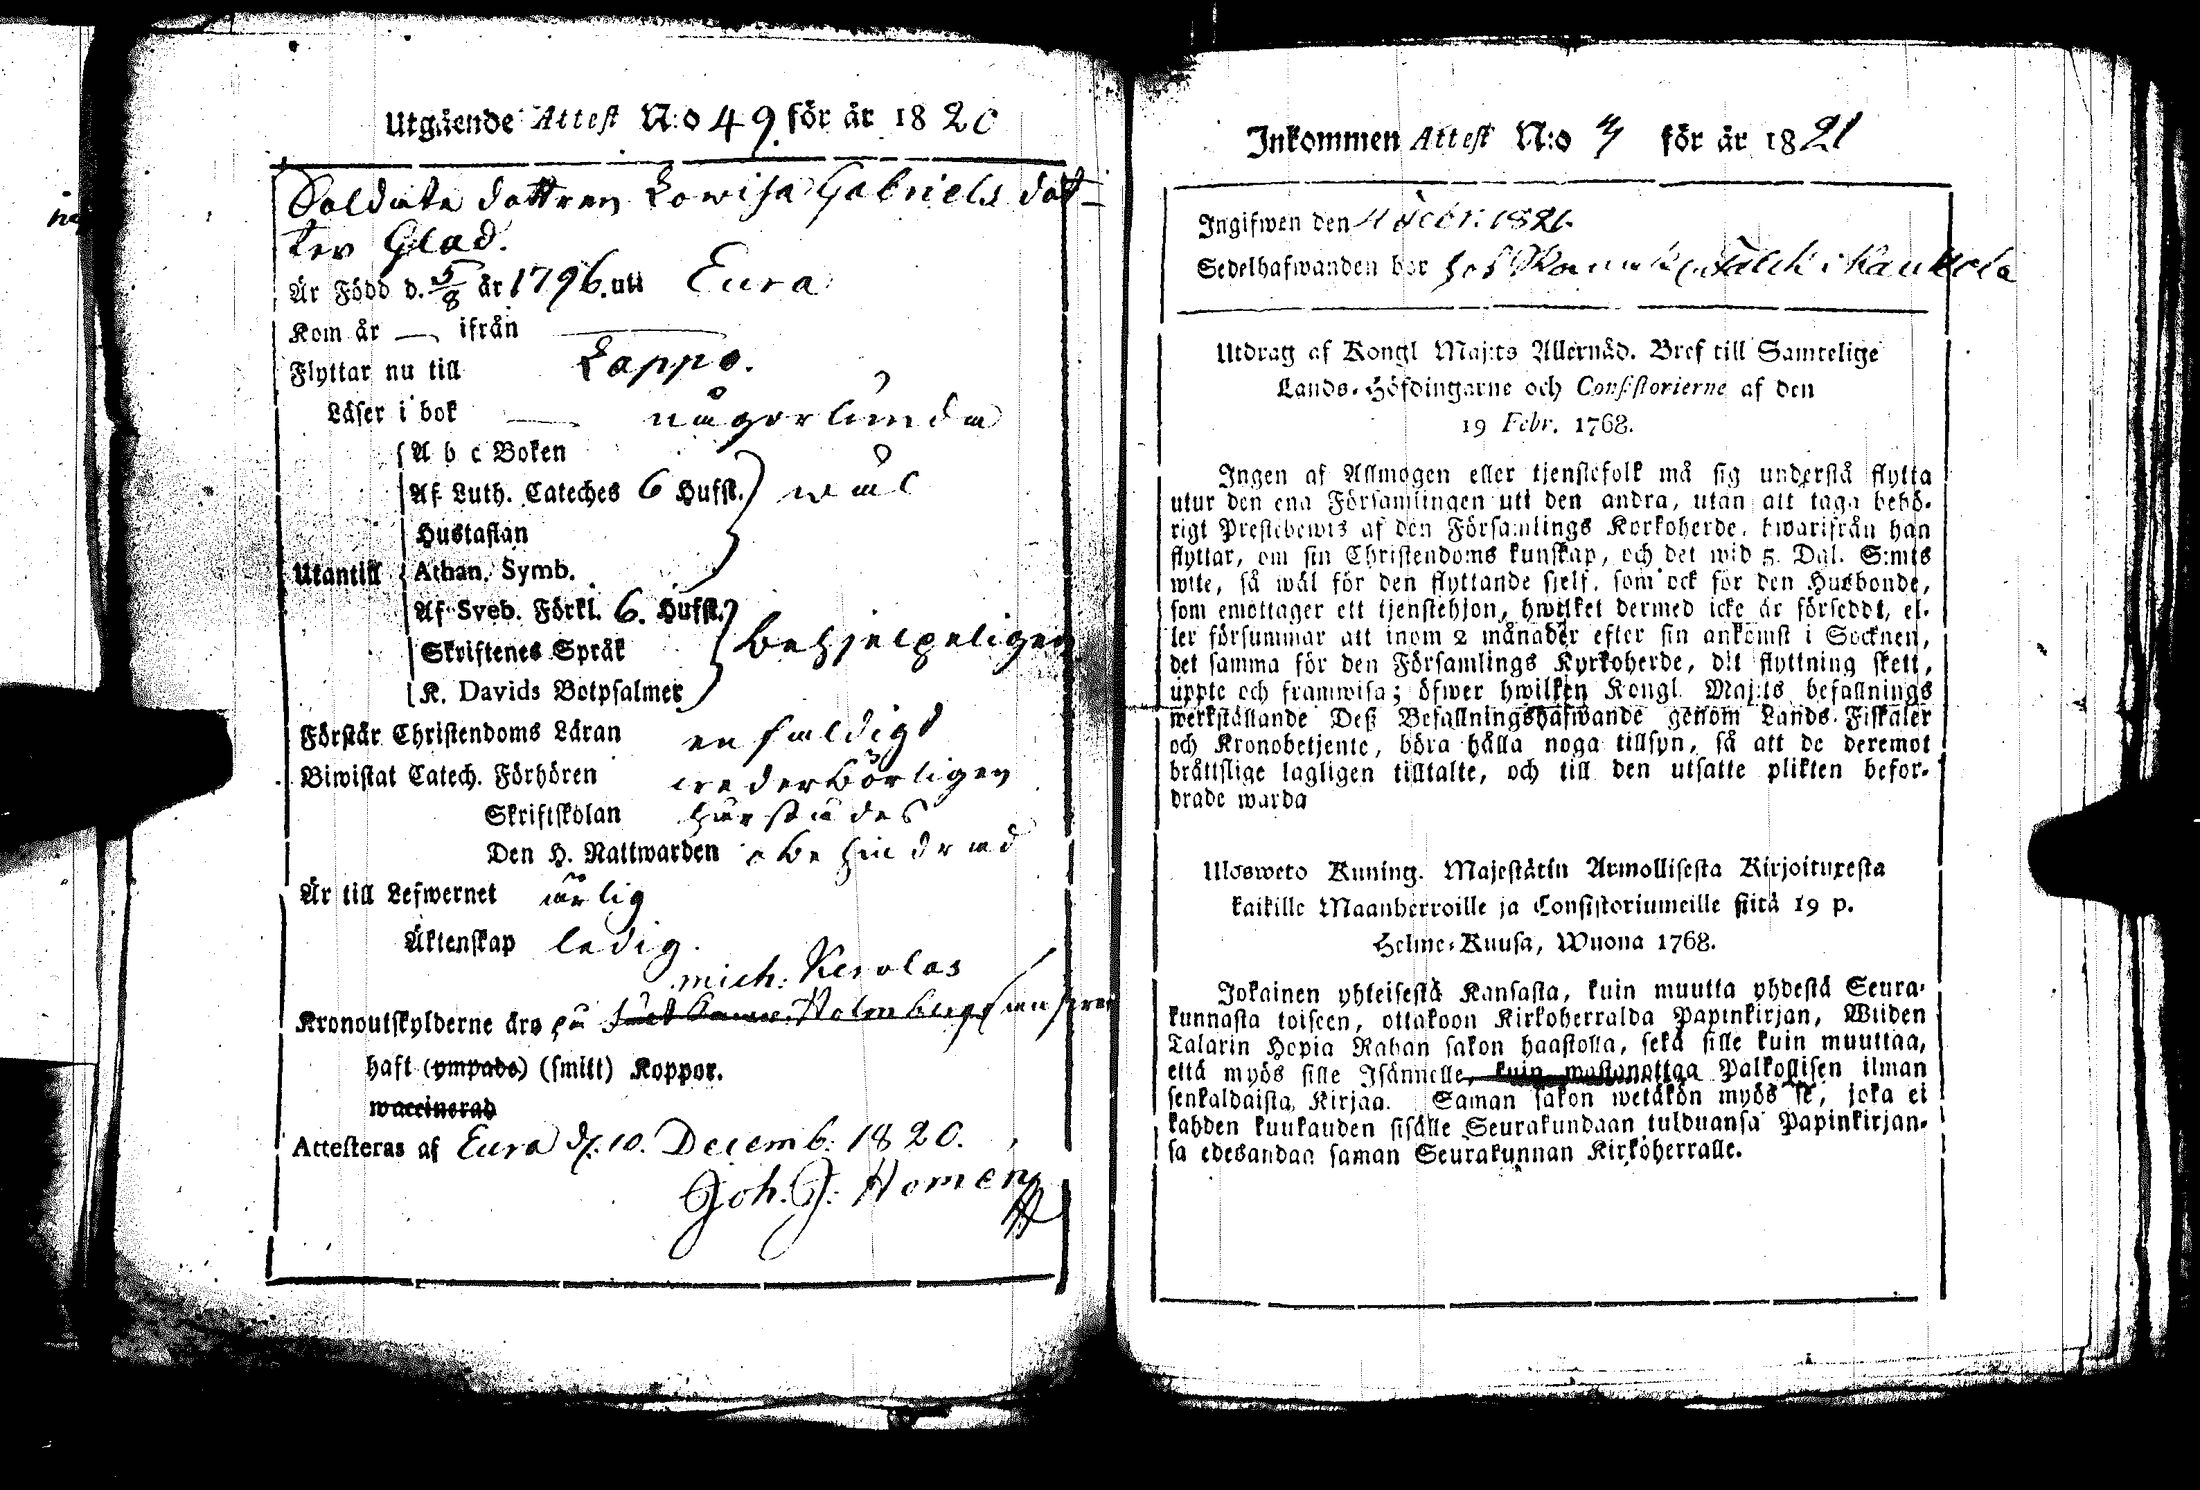 Utgående Attest N:o 49. för år 1820
Soldate dottren Lowisa Gabriels dot-
ter Glad.
Är Född d. 5/8 år 1796. uti Eura
Kom år — ifrån —
Flyttar nu till Lappo.
Läser i bok — någorlunda
A b c Boken
Af Luth. Cateches 6 Hufst. wäl
Hustaflan
Utantill Athan. Symb.
Af Sveb. Förkl. 6. Hufst.
Skriftenes Språk behjelpeligen
K. Davids Botpsalmer
Förstår Christendoms Läran enfaldigt
Biwistat Catech. Förhören wederbörligen
Skriftskolan
Den H. Nattwarden obehindrad
Är till Lefwernet ärlig
Äktenskap ledig.
mich: Kerolas
Kronoutskylderne äro på Holmbergs
haft (ympade) (smitt) Koppor.
waccinerad
Attesteras af Eura d. 10. Decemb: 1820.
Joh. J: Homén
Inkommen Attest N:o 3 för år 1821
Ingifwen den 4 Febr. 1821.
Sedelhafwanden bor hos i Kaukola
Utdrag af Kongl Maj:ts Allernåd. Bref till Samtelige
Lands-Höfdingarne och Consistorierne af den
19 Febr. 1768.
Ingen af Allmogen eller tjenstefolk må sig understå flytta
utur den ena Församlingen uti den andra, utan att taga behö-
rigt Prestebewis af den Församlings Korkoherde, hwarifrån han
flyttar, om sin Christendoms kunskap, och det wid 5. Dal. S:mts
wite, så wäl för den flyttande sjelf, som ock för den Husbonde,
som emottager ett tjenstehjon, hwilket dermed icke är förseddt, el-
ler försummar att inom 2 månader efter sin ankomst i Socknen,
det samma för den Församlings Kyrkoherde, dit flyttning skett,
uppte och framwisa; öfwer hwilken Kongl Maj:ts befallnings
werkställande Deß Befallningshafwande genom Lands-Fiskaler
och Kronobetjente, böra hålla noga tillsyn, så att de deremot
bråttslige lagligen tilltalte, och till den utsatte plikten befor-
drade warda
Ulosweto Kuning. Majestätin Armollisesta Kirjoituxesta
kaikille Maanherroille ja Consistoriumeille siitä 19 p.
Helme-Kuusa, Wuona 1768.
Jokainen yhteisestä Kansasta, kuin muutta yhdestä Seura-
kunnasta toiseen, ottakoon Kirkoherralda Papinkirjan, Wiiden
Talarin Hopia Rahan sakon haastolla, sekä sille kuin muuttaa,
että myös sille Isännelle, kuin wastanottaa Palkollisen ilman
senkaldaista Kirjaa. Saman sakon wetäkön myös se, joka ei
kahden kuukauden sisälle Seurakundaan tulduansa Papinkirjan-
sa edesandaa saman Seurakunnan Kirkoherralle.